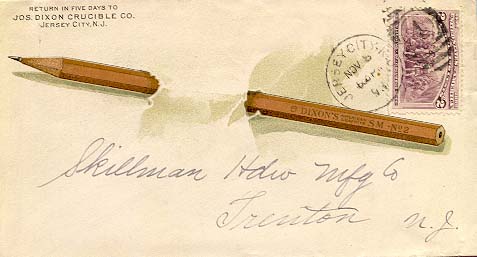 RETURN IN FIVE DAYS TO
JOS. DIXON CRUCIBLE CO.
JERSEY CITY, N.J.
JERSEY CITY, N.J.
NOV 6
93
2
DIXON'S AMERICAN GRAPHITE S M - No 2
Skillman Hdw Mfg Co
Trenton N.J.